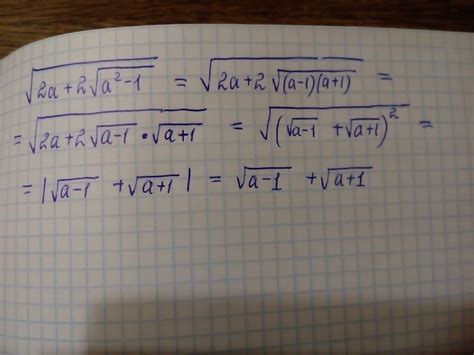 √(2a+2√(a²-1)) = √(2a+2√((a-1)(a+1))) =
= √(2a+2√(a-1) · √(a+1)) = √((√(a-1) + √(a+1))²) =
= |√(a-1) + √(a+1)| = √(a-1) + √(a+1)